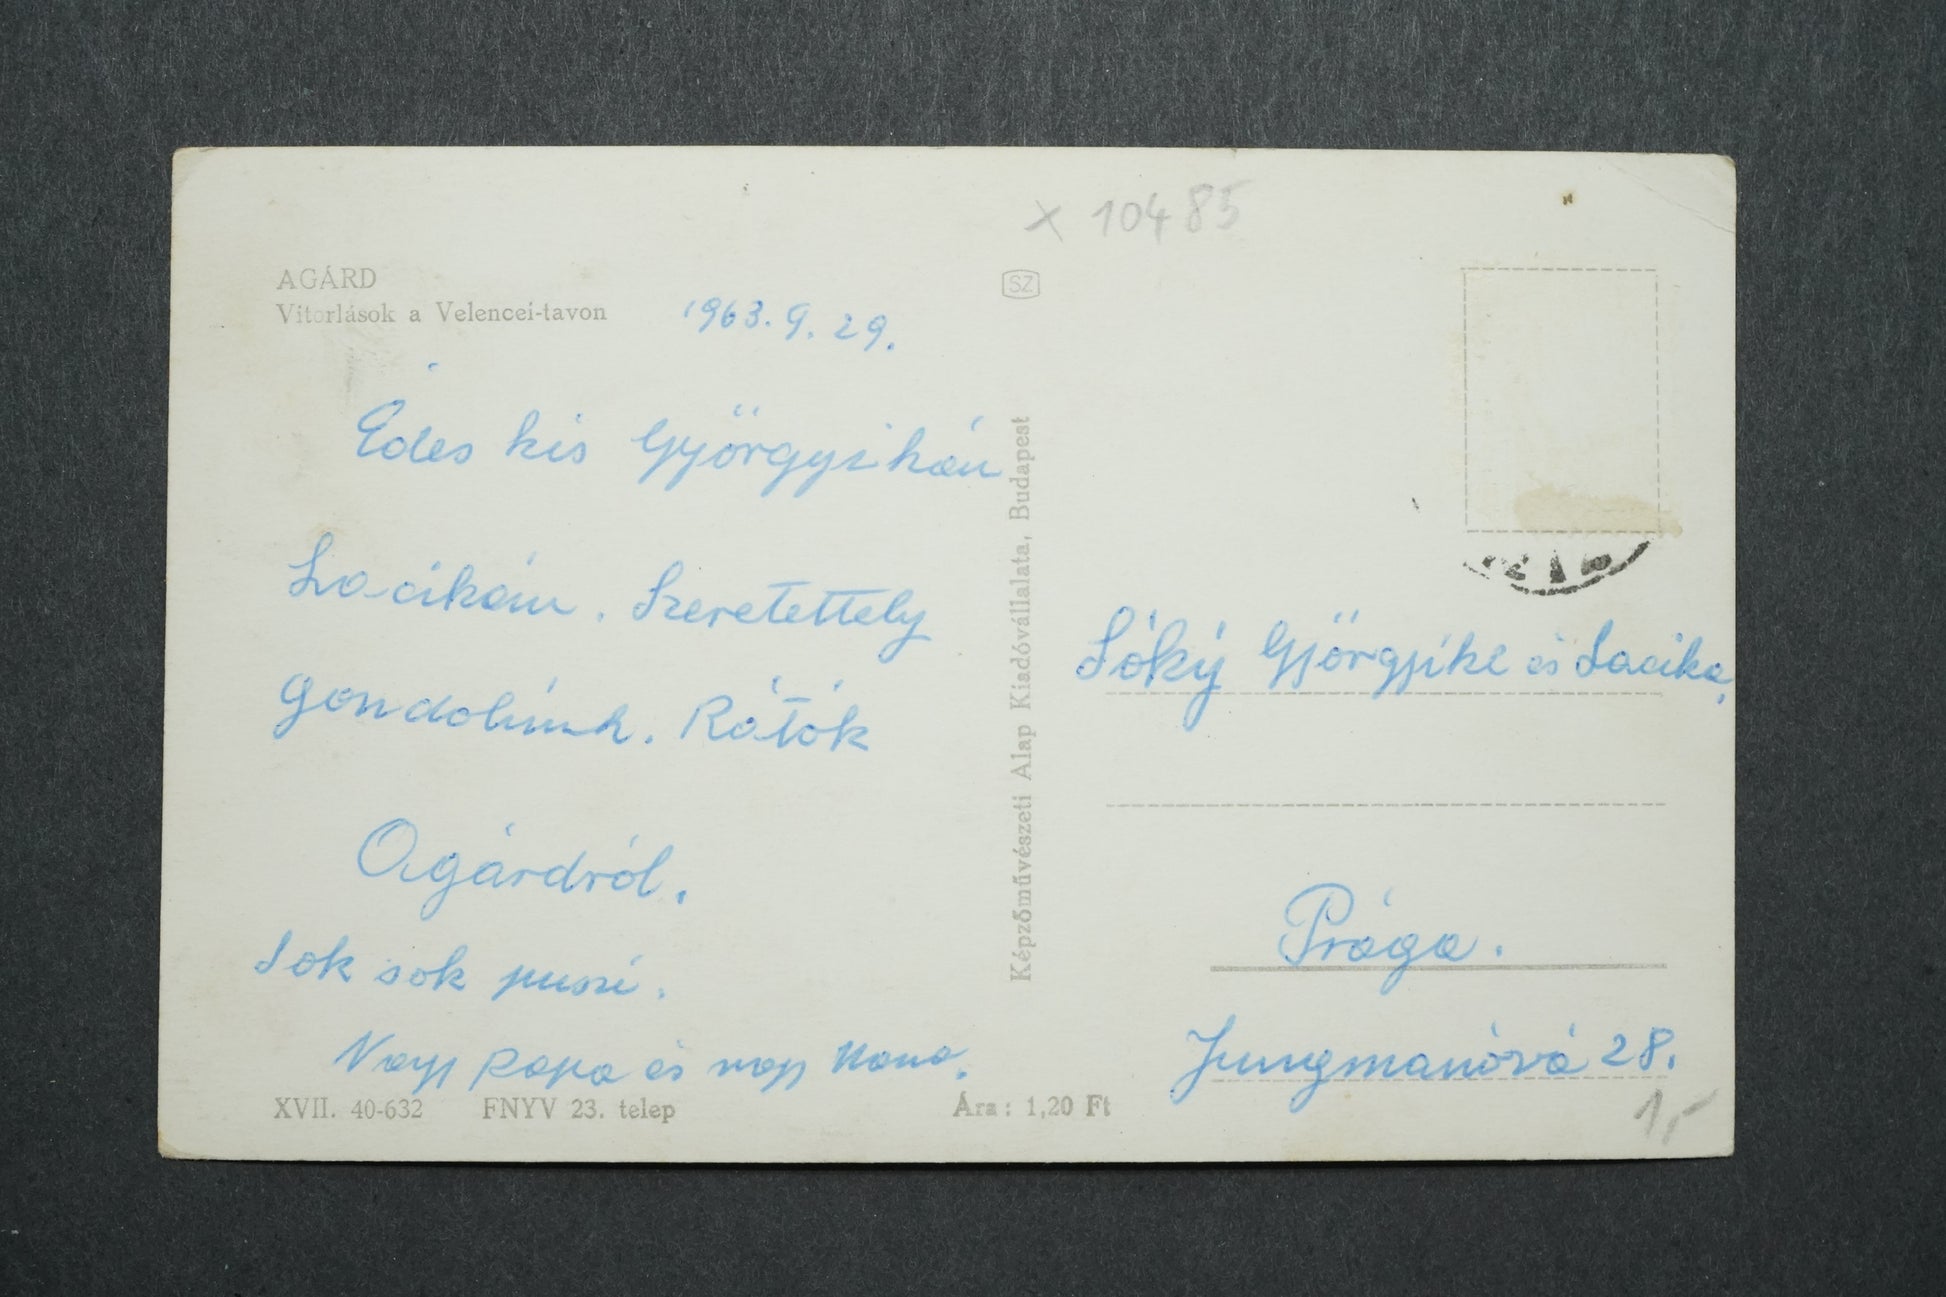 x 10485
AGÁRD
Vitorlások a Velencei-tavon
1963. 9. 29.
SZ
Édes kis Györgyikém
Lacikám. Szeretettely
gondolunk. Rátok
Agárdról.
Sok sok puszi.
Nagy papa és nagy Mama.
XVII. 40-632 FNYV 23. telep
Ára: 1,20 Ft
Képzőművészeti Alap Kiadóvállalata, Budapest
Sóky Györgyike és Lacika,
Prága.
Jungmanóvá 28.
1,-